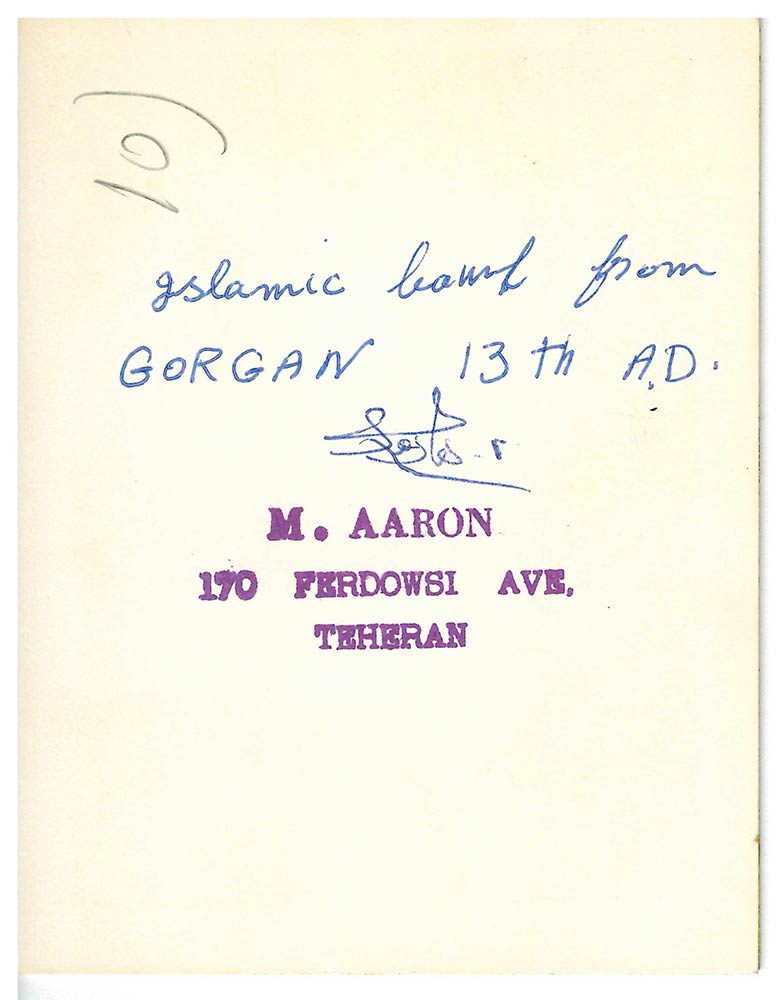 10)
Islamic bowl from
GORGAN 13th A.D.
M. AARON
170 FERDOWSI AVE,
TEHERAN